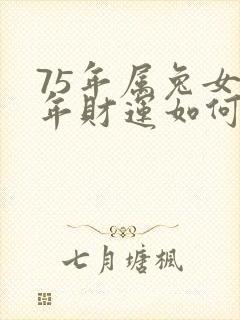 75年属兔女
年财运如何
七月塘楓